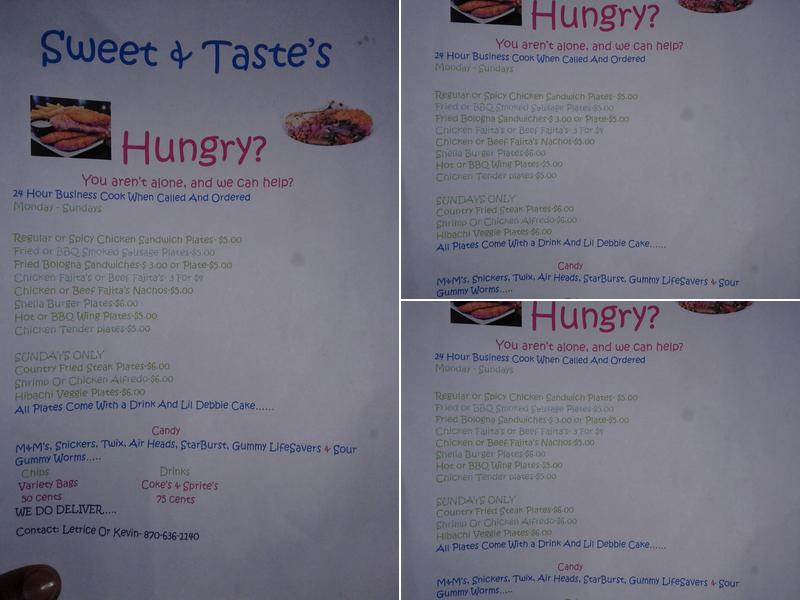 Sweet & Taste's
Hungry?
You aren't alone, and we can help?
24 Hour Business Cook When Called And Ordered
Monday - Sundays
Regular or Spicy Chicken Sandwich Plates- $5.00
Fried or BBQ Smoked Sausage Plates-$5.00
Fried Bologna Sandwiches-$ 3.00 or Plate-$5.00
Chicken Fajita's or Beef Fajita's- 3 For $9
Chicken or Beef Fajita's Nachos-$5.00
Shella Burger Plates-$6.00
Hot or BBQ Wing Plates-$5.00
Chicken Tender plates-$5.00
SUNDAYS ONLY
Country Fried Steak Plates-$6.00
Shrimp Or Chicken Alfredo-$6.00
Hibachi Veggie Plates-$6.00
All Plates Come With a Drink And Lil Debbie Cake......
Candy
M&M's, Snickers, Twix, Air Heads, StarBurst, Gummy LifeSavers & Sour
Gummy Worms.....
Chips Drinks
Variety Bags Coke's & Sprite's
50 cents 75 cents
WE DO DELIVER.....
Contact: Letrice Or Kevin- 870-636-1140
Hungry?
You aren't alone, and we can help?
24 Hour Business Cook When Called And Ordered
Monday - Sundays
Regular or Spicy Chicken Sandwich Plates- $5.00
Fried or BBQ Smoked Sausage Plates-$5.00
Fried Bologna Sandwiches-$ 3.00 or Plate-$5.00
Chicken Fajita's or Beef Fajita's- 3 For $9
Chicken or Beef Fajita's Nachos-$5.00
Shella Burger Plates-$6.00
Hot or BBQ Wing Plates-$5.00
Chicken Tender plates-$5.00
SUNDAYS ONLY
Country Fried Steak Plates-$6.00
Shrimp Or Chicken Alfredo-$6.00
Hibachi Veggie Plates-$6.00
All Plates Come With a Drink And Lil Debbie Cake......
Candy
M&M's, Snickers, Twix, Air Heads, StarBurst, Gummy LifeSavers & Sour
Gummy Worms.....
Hungry?
You aren't alone, and we can help?
24 Hour Business Cook When Called And Ordered
Monday - Sundays
Regular or Spicy Chicken Sandwich Plates- $5.00
Fried or BBQ Smoked Sausage Plates-$5.00
Fried Bologna Sandwiches-$ 3.00 or Plate-$5.00
Chicken Fajita's or Beef Fajita's- 3 For $9
Chicken or Beef Fajita's Nachos-$5.00
Shella Burger Plates-$6.00
Hot or BBQ Wing Plates-$5.00
Chicken Tender plates-$5.00
SUNDAYS ONLY
Country Fried Steak Plates-$6.00
Shrimp Or Chicken Alfredo-$6.00
Hibachi Veggie Plates-$6.00
All Plates Come With a Drink And Lil Debbie Cake......
Candy
M&M's, Snickers, Twix, Air Heads, StarBurst, Gummy LifeSavers & Sour
Gummy Worms.....